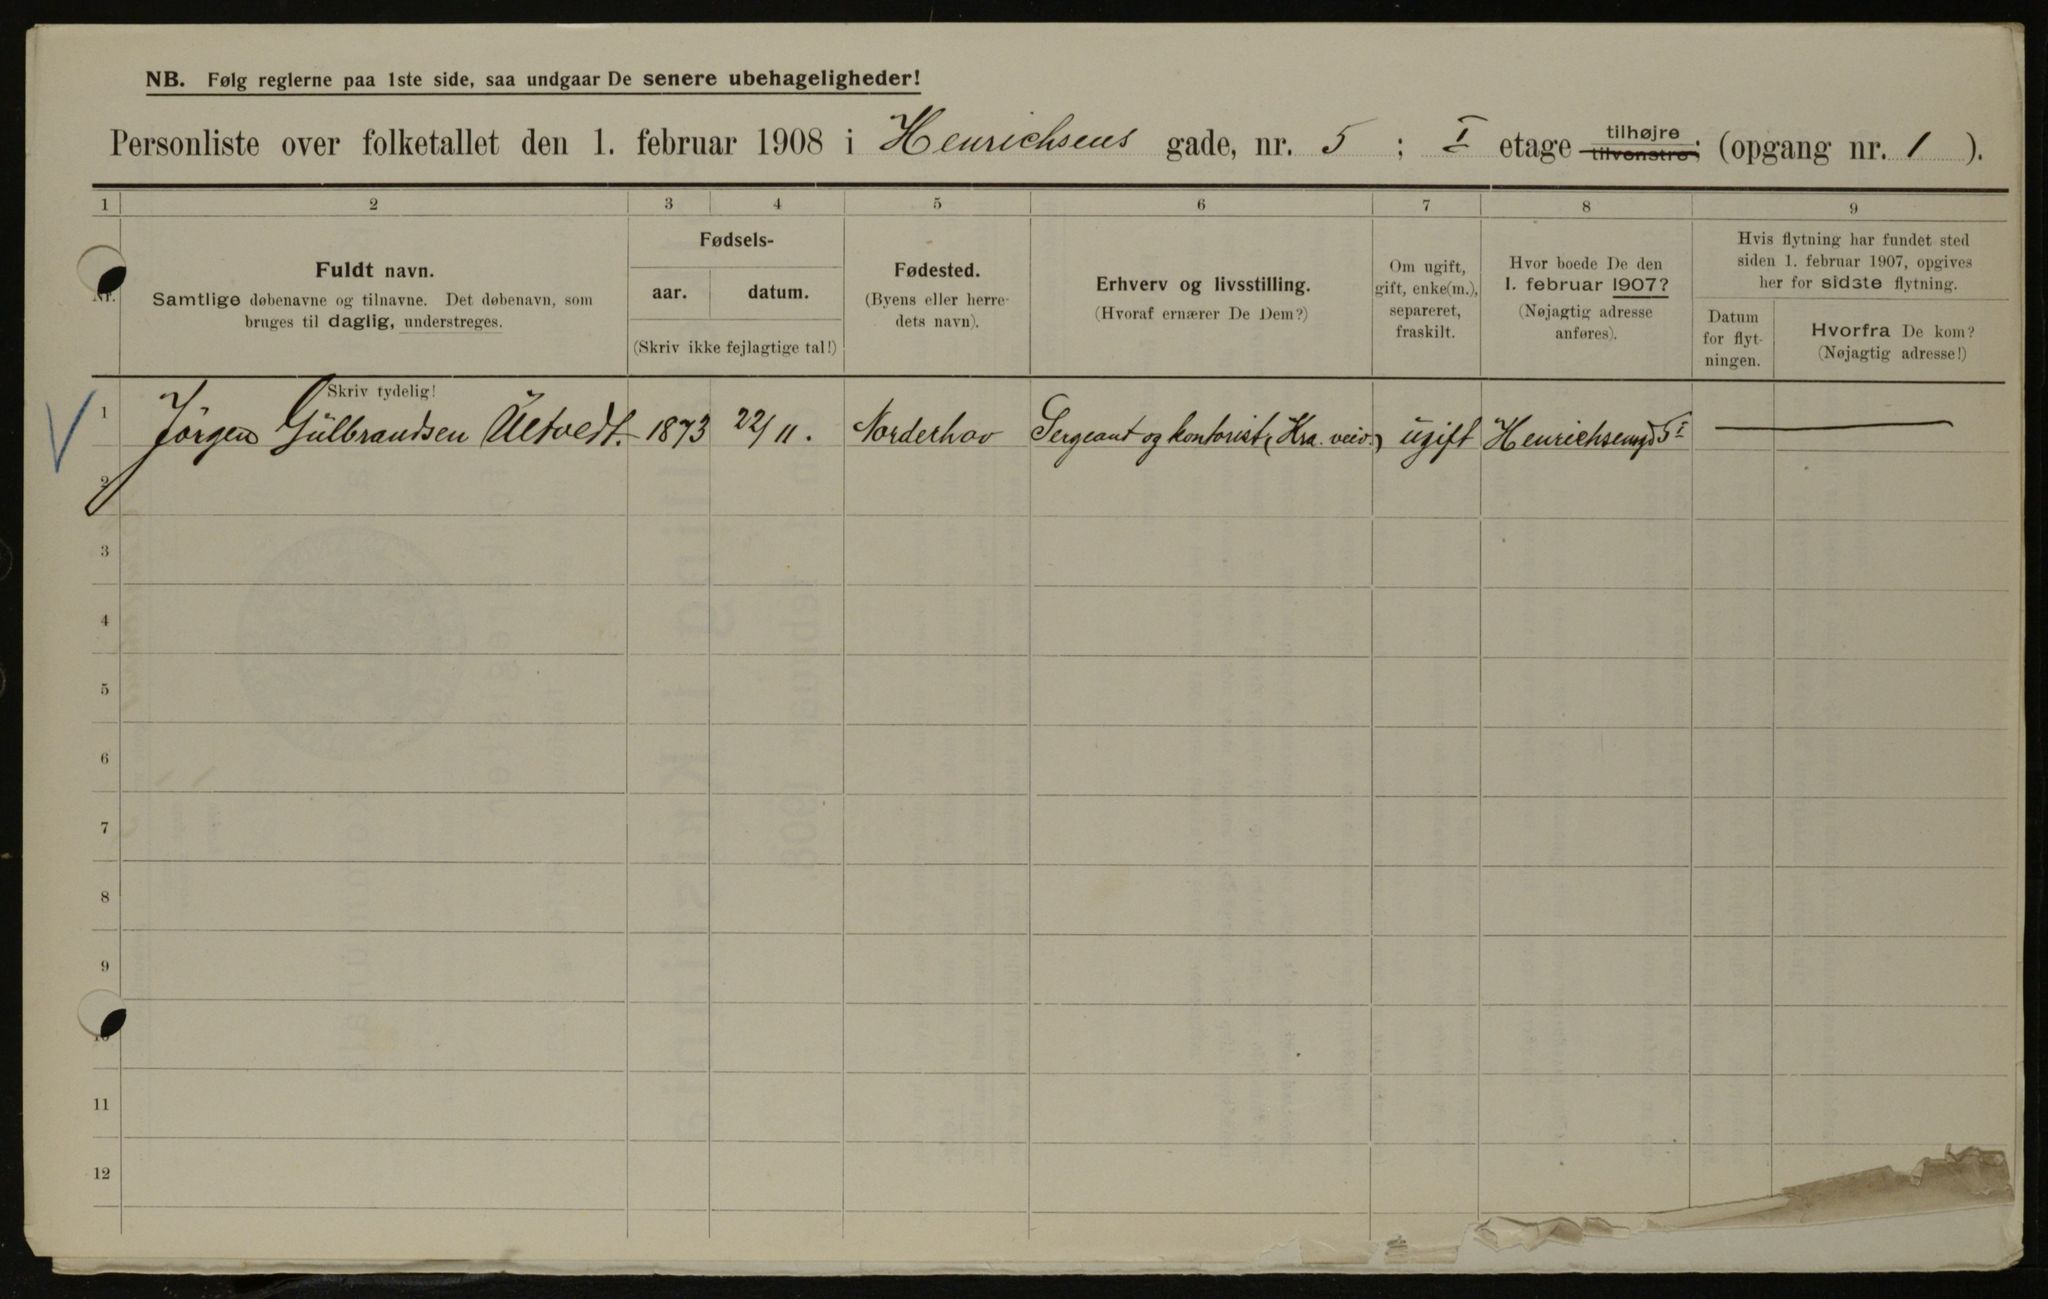 NB. Følg reglerne paa 1ste side, saa undgaar De senere ubehageligheder!
Personliste over folketallet den 1. februar 1908 i Henrichsens gade, nr. 5 ; I etage tilhøjre tilvenstre; (opgang nr. 1 ).
1 2 3 4 5 6 7 8 9
Nr.
Fuldt navn.
Samtlige døbenavne og tilnavne. Det døbenavn, som
bruges til daglig, understreges.
Skriv tydelig!
Fødsels-
aar. datum.
(Skriv ikke fejlagtige tal!)
Fødested.
(Byens eller herre-
dets navn).
Erhverv og livsstilling.
(Hvoraf ernærer De Dem?)
Om ugift,
gift, enke(m.),
separeret,
fraskilt.
Hvor boede De den
1. februar 1907?
(Nøjagtig adresse
anføres).
Hvis flytning har fundet sted
siden 1. februar 1907, opgives
her for sidste flytning.
Datum
for flyt-
ningen.
Hvorfra De kom?
(Nøjagtig adresse!)
1 Jörgen Gülbrandsen Ültvedt. 1873 22/11. Norderhov Sergeant og kontorist (Kra. veiv.) ugift Henrichsensgd 5 I
2
3
4
5
6
7
8
9
10
11
12